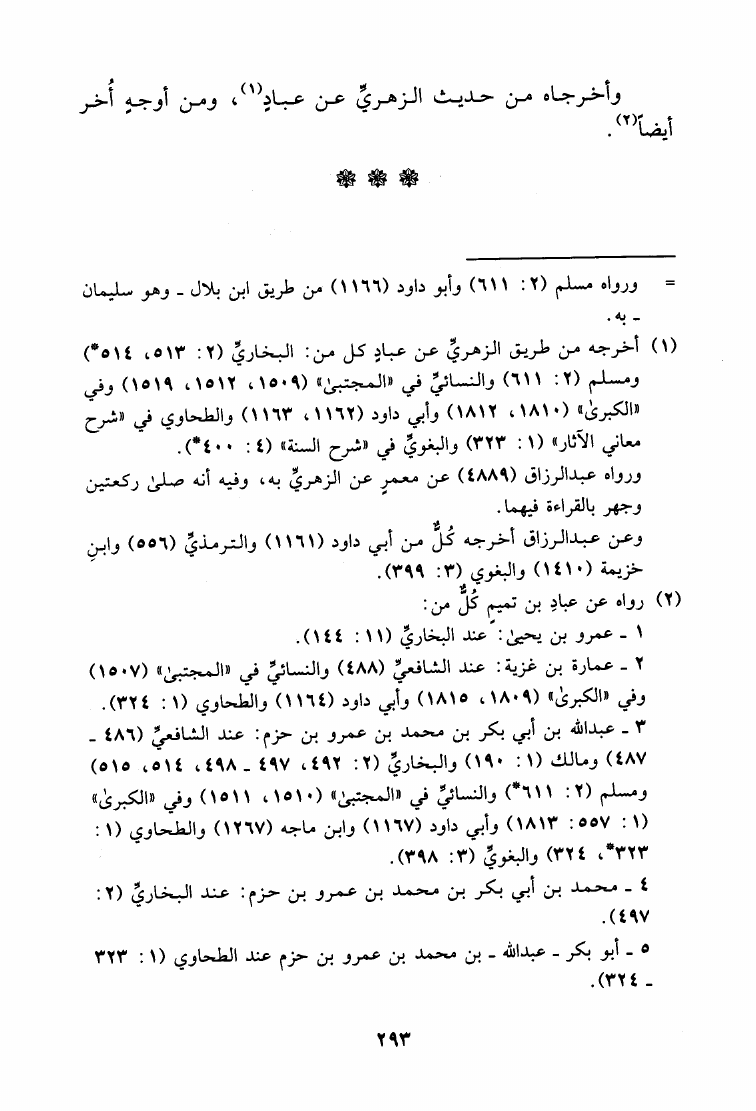 وأخرجاه من حديث الزهريِّ عن عبادٍ(١)، ومن أوجهٍ أُخر
أيضاً(٢).
= ورواه مسلم (٢: ٦١١) وأبو داود (١١٦٦) من طريق ابن بلال ـ وهو سليمان
ـ به.
(١) أخرجه من طريق الزهريِّ عن عبادٍ كل من: البخاريِّ (٢: ٥١٣، ٥١٤*)
ومسلم (٢: ٦١١) والنسائيِّ في «المجتبىٰ» (١٥٠٩، ١٥١٢، ١٥١٩) وفي
«الكبرىٰ» (١٨١٠، ١٨١٢) وأبي داود (١١٦٢، ١١٦٣) والطحاوي في «شرح
معاني الآثار» (١: ٣٢٣) والبغويِّ في «شرح السنة» (٤: ٤٠٠*).
ورواه عبدالرزاق (٤٨٨٩) عن معمرٍ عن الزهريِّ به، وفيه أنه صلىٰ ركعتين
وجهر بالقراءة فيهما.
وعن عبدالرزاق أخرجه كُلٌّ من أبي داود (١١٦١) والترمذيِّ (٥٥٦) وابنِ
خزيمة (١٤١٠) والبغوي (٣: ٣٩٩).
(٢) رواه عن عبادِ بن تميمٍ كُلٌّ من:
١ ـ عمرو بن يحيىٰ: عند البخاريِّ (١١: ١٤٤).
٢ ـ عمارة بن غزية: عند الشافعيِّ (٤٨٨) والنسائيِّ في «المجتبىٰ» (١٥٠٧)
وفي «الكبرىٰ» (١٨٠٩، ١٨١٥) وأبي داود (١١٦٤) والطحاوي (١: ٣٢٤).
٣ ـ عبدالله بن أبي بكر بن محمد بن عمرو بن حزم: عند الشافعيِّ (٤٨٦ ـ
٤٨٧) ومالك (١: ١٩٠) والبخاريِّ (٢: ٤٩٢، ٤٩٧ ـ ٤٩٨، ٥١٤، ٥١٥)
ومسلم (٢: ٦١١*) والنسائيِّ في «المجتبىٰ» (١٥١٠، ١٥١١) وفي «الكبرىٰ»
(١: ٥٥٧: ١٨١٣) وأبي داود (١١٦٧) وابن ماجه (١٢٦٧) والطحاوي (١:
٣٢٣*، ٣٢٤) والبغويِّ (٣: ٣٩٨).
٤ ـ محمد بن أبي بكر بن محمد بن عمرو بن حزم: عند البخاريِّ (٢:
٤٩٧).
٥ ـ أبو بكر ـ عبدالله ـ بن محمد بن عمرو بن حزم عند الطحاوي (١: ٣٢٣
ـ ٣٢٤).
٢٩٣